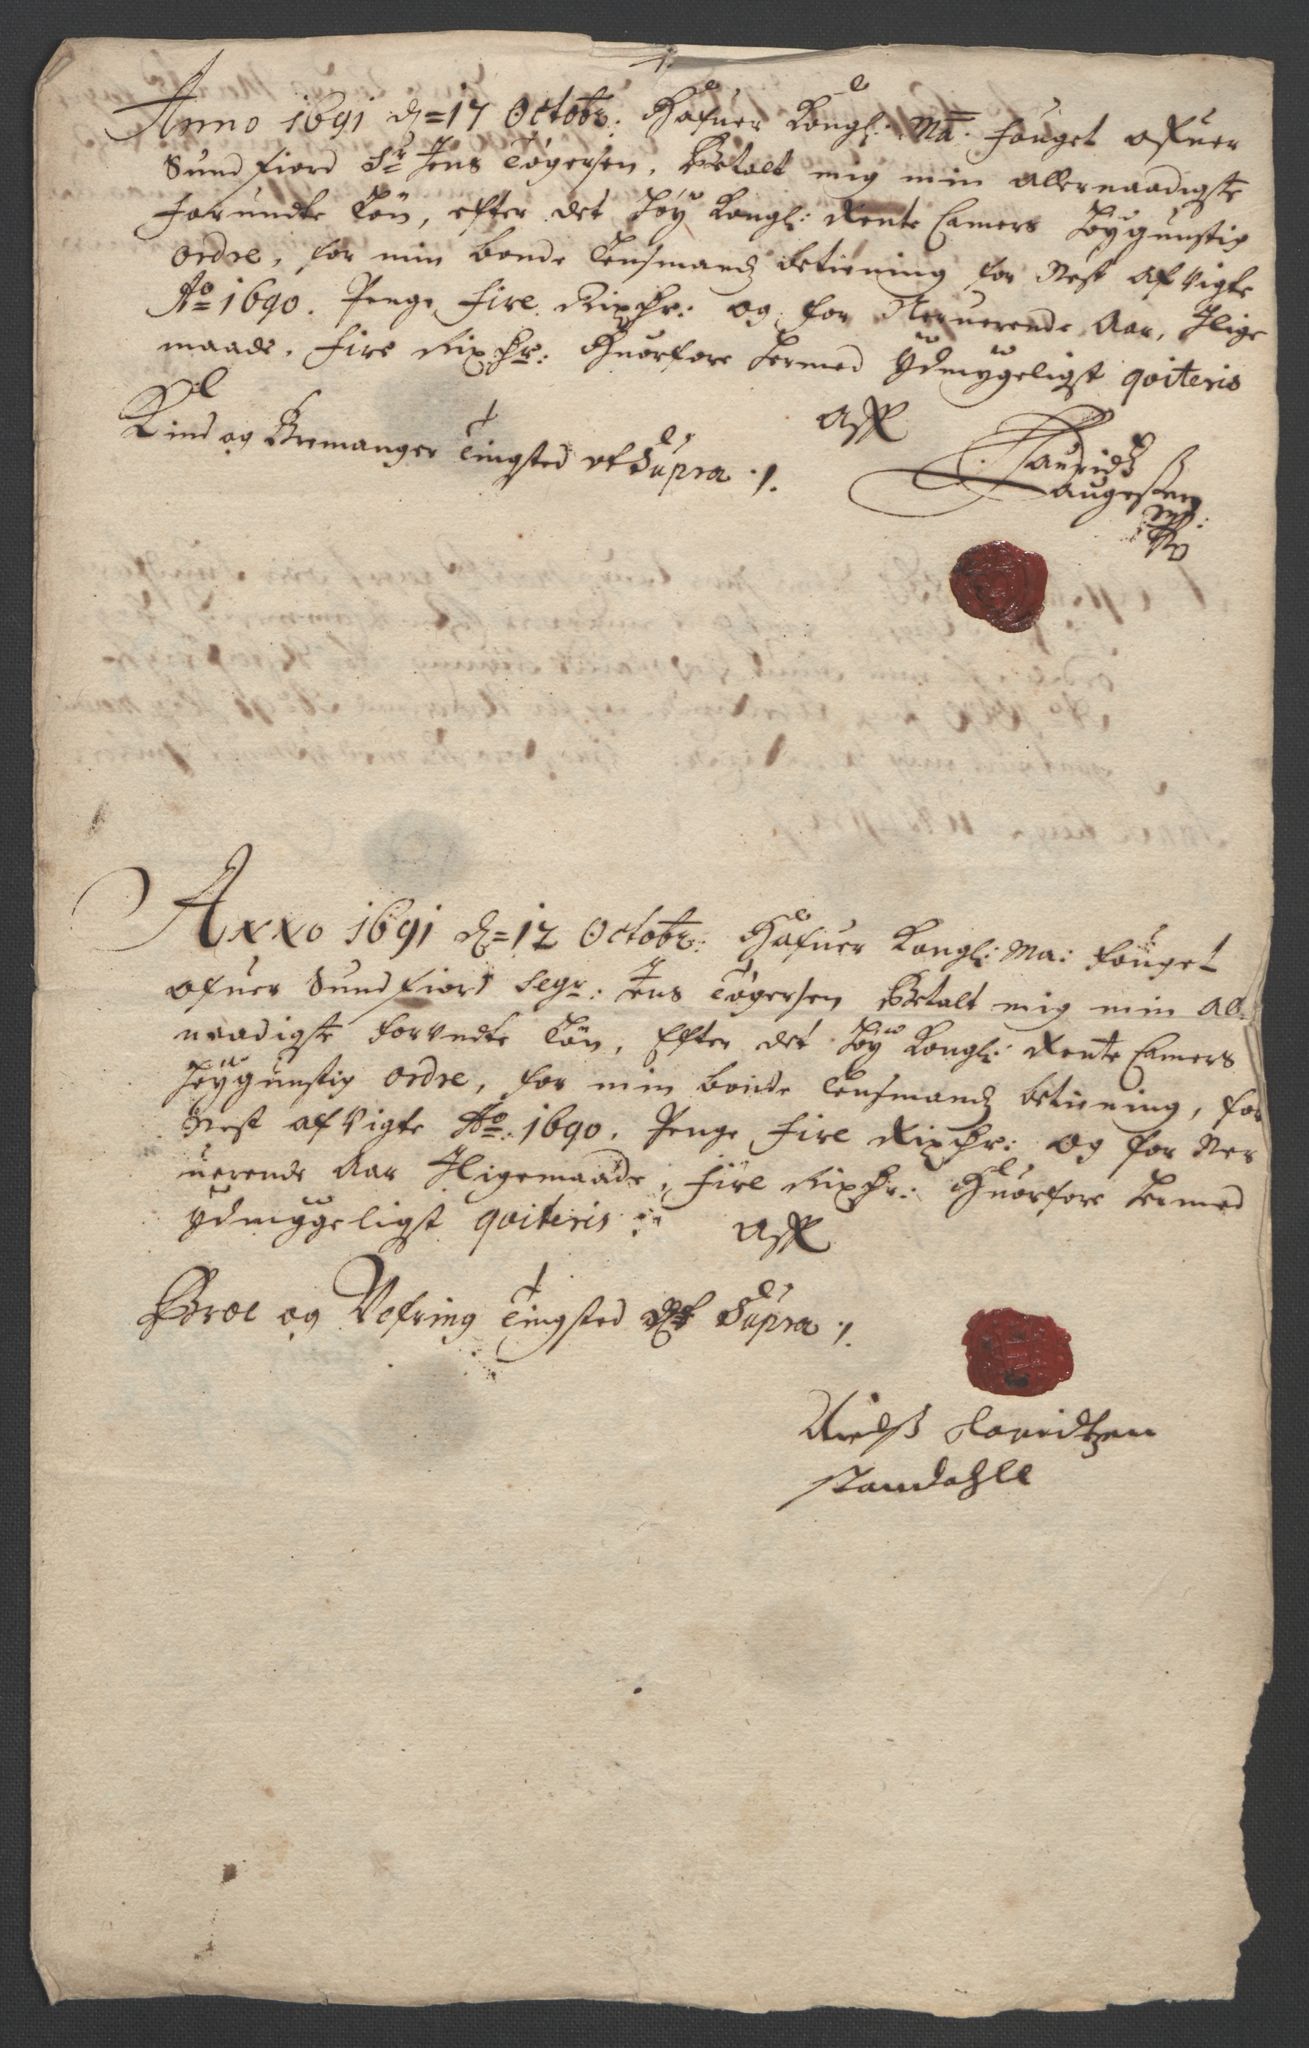 Anno 1691 d= 17 Octobr: Hafuer Kongl: Ma: fouget ofuer
Sundfiord Sr Jens Tøgersen, Betalt mig min allernaadigste
forundte Løn, efter det høy Kongl: Rente Camers høygunstig
ordre, for min bonde Lensmands betiening for Nest afvigte
Ao 1690. Penge fire Rixdr: og for Neruerende Aar, Jlige
maade, fire Rixdr: Huorfore hermed Ydmygeligst qviteris
Aff
Kind og Bremanger Tingsted ut Supra ./.
Lauridtz
Laugesen
Anno 1691 d= 12 Octobr: Hafuer Kongl: Ma: fouget
ofuer Sundfiord Segr: Jens Tøgersen Betalt mig min al-
naadigste forundte Løn, Efter det høy Kongl: Rente Camers
høygunstig ordre, for min bonde Lensmands betiening, for
Nest afvigte Ao: 1690, Penge fire Rixdr: og for Ner
uerende Aar Jligemaade, fire Rixdr: Huorfore hermed
Ydmyggeligst qviteris
Aff
Broe og Vefring Tingsted ut Supra ./.
Nielß Lauridtzen
Standahll